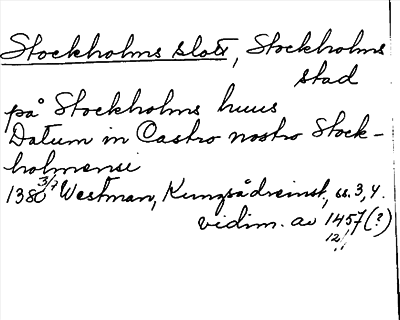 Stockholms slott, Stockholms
stad
på Stockholms huus
Datum in Castro nostro Stock-
holmensi
1380 3/7 Westman, Kungsådreinst, ss. 3, 4.
vidim. av 1457 (?)
12/1